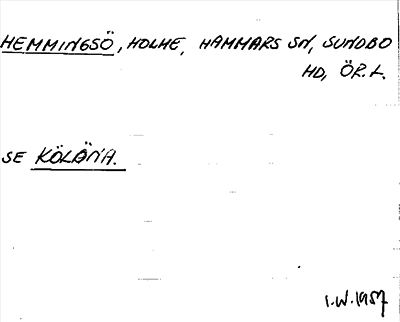 HEMMINGSÖ, HOLME, HAMMARS SN, SUNDBO
HD, ÖR.L.
SE KÖLÄNA.
I.W.1957